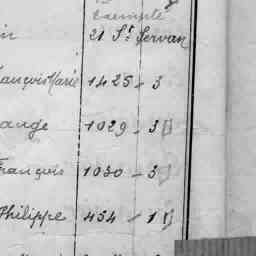 Exempté
in 21 St Servan
François Marie 1425 - 3
ange 1029 - 3
François 1030 - 3
Philippe 454 - 1